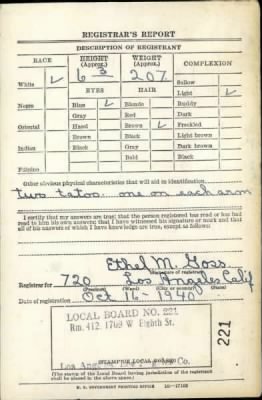 REGISTRAR'S REPORT
DESCRIPTION OF REGISTRANT
RACE HEIGHT (Approx.) WEIGHT (Approx.) COMPLEXION
6 3 207
White ✓ Sallow
EYES HAIR Light ✓
Negro Blue ✓ Blonde Ruddy
Gray Red Dark
Oriental Hazel Brown ✓ Freckled
Brown Black Light brown
Indian Black Gray Dark brown
Bald Black
Filipino
Other obvious physical characteristics that will aid in identification
two tatoo. one on each arm
I certify that my answers are true; that the person registered has read or has had
read to him his own answers; that I have witnessed his signature or mark and that
all of his answers of which I have knowledge are true, except as follows:
Ethel M. Goss
(Signature of registrar)
Registrar for 720 Los Angeles Calif
(Precinct) (Ward) (City or county) (State)
Date of registration Oct 16 - 1940
LOCAL BOARD NO. 221
Rm. 412, 1709 W Eighth St.
221
Los Angeles Co.
(The stamp of the Local Board having jurisdiction of the registrant
shall be placed in the above space.)
U. S. GOVERNMENT PRINTING OFFICE